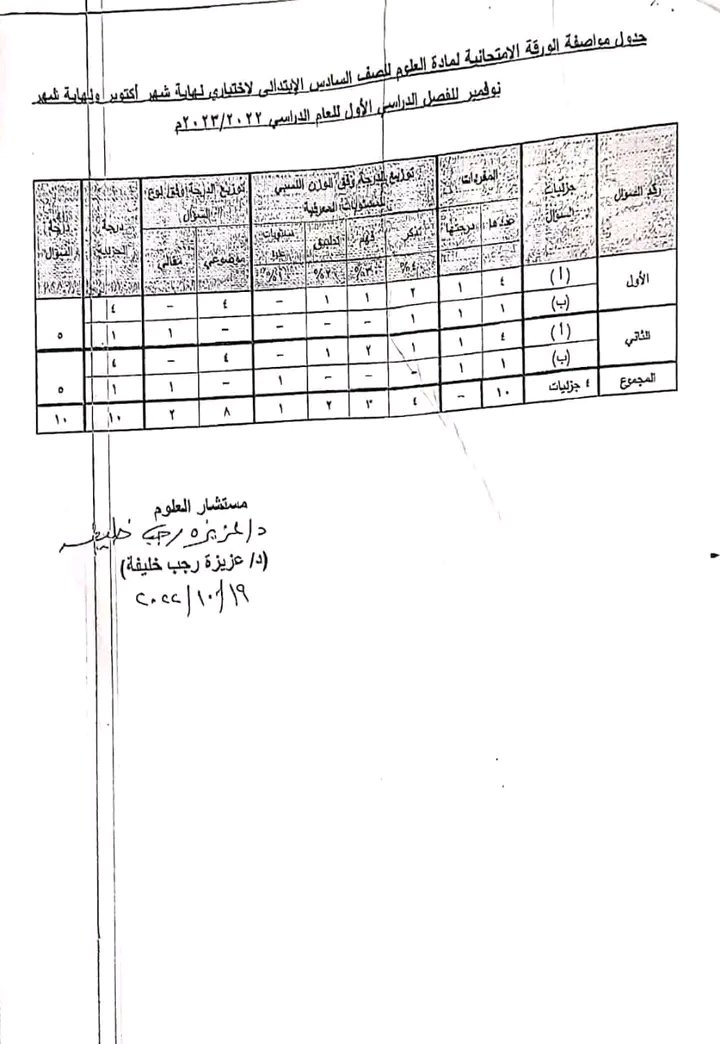 جدول مواصفة الورقة الامتحانية لمادة العلوم للصف السادس الإبتدائى لاختباري نهاية شهر أكتوبر ونهاية شهر
نوفمبر للفصل الدراسي الأول للعام الدراسي ٢٠٢٣/٢٠٢٢م
رقم السؤال جزئيات السؤال المفردات توزيع الدرجة وفق الوزن النسبي للمستويات المعرفية توزيع الدرجة وفق نوع السؤال درجة الجزئية درجة السؤال
عددها درجتها تذكر فهم تطبيق مستويات عليا موضوعي مقالي
٤٠% ٣٠% ٢٠% ١٠%
الأول (أ) ٤ ١ ٢ ١ ١ - ٤ - ٤
(ب) ١ ١ ١ - - - - ١ ١ ٥
الثاني (أ) ٤ ١ ١ ٢ ١ - ٤ - ٤
(ب) ١ ١ - - - ١ - ١ ١ ٥
المجموع ٤ جزئيات ١٠ - ٤ ٣ ٢ ١ ٨ ٢ ١٠ ١٠
مستشار العلوم
د/ عزيزة رجب خليفة
(د/ عزيزة رجب خليفة)
٢٠٢٢/١٠/١٩